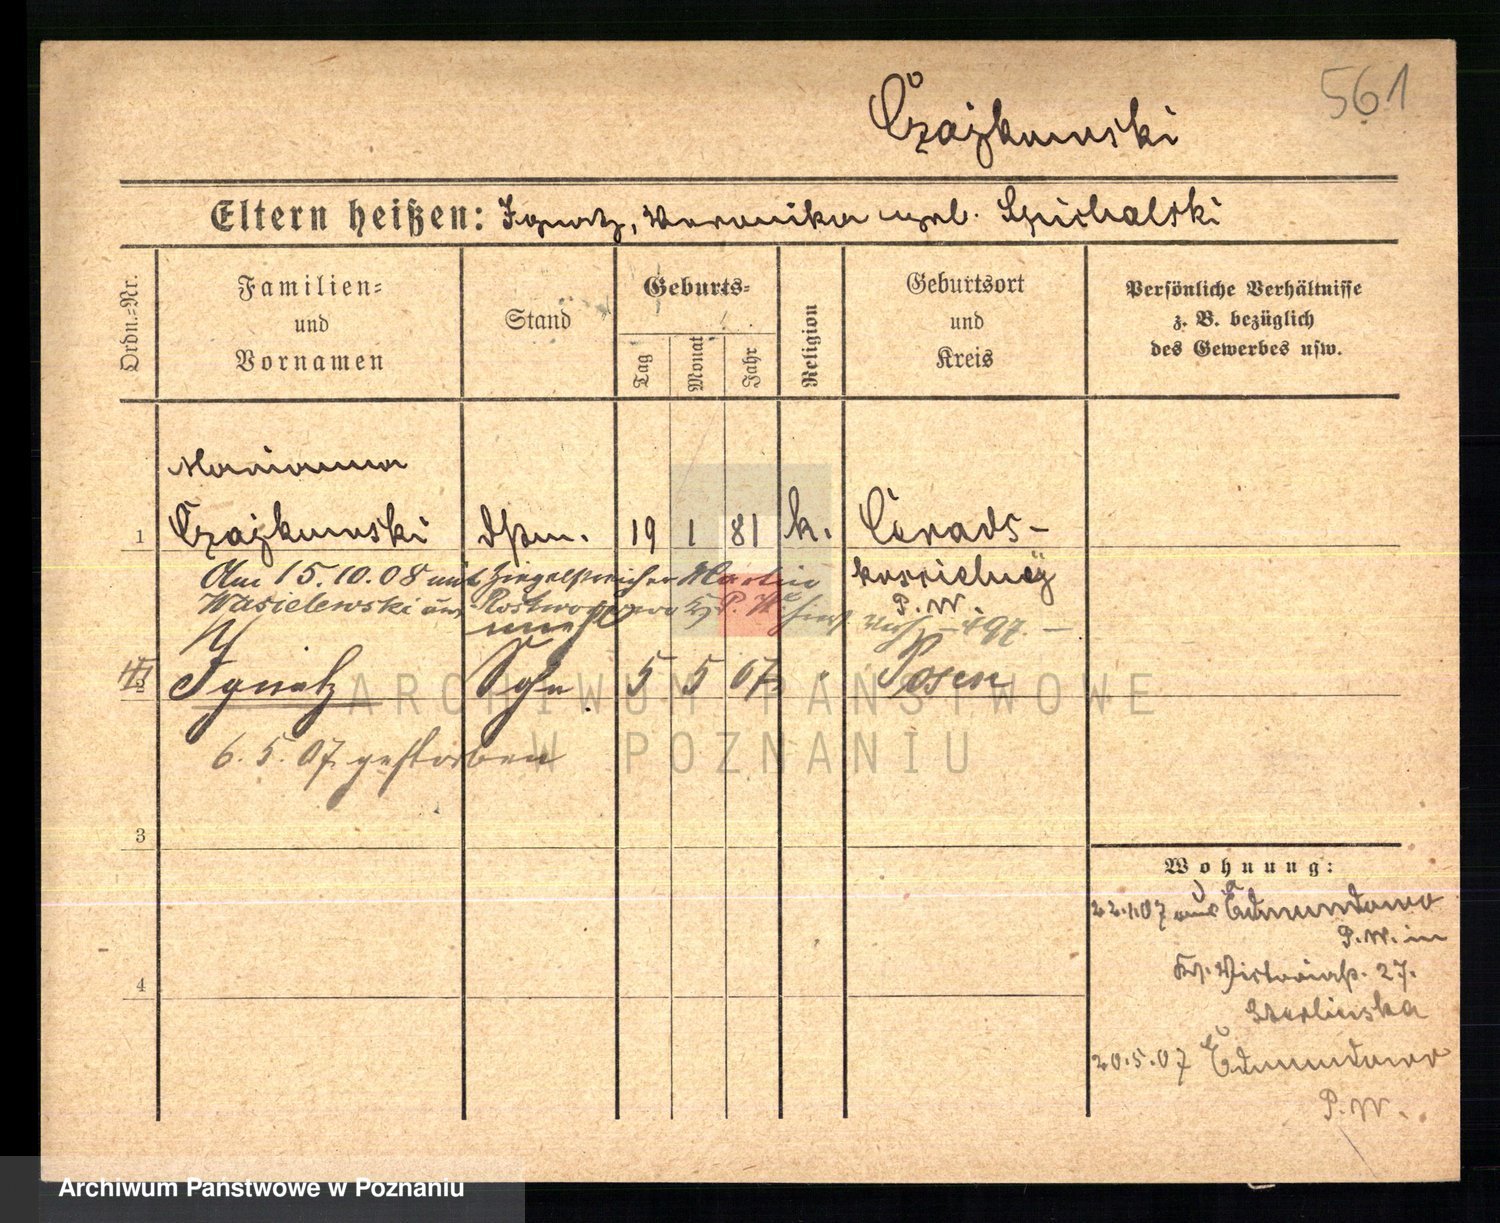 561
Czajkowski
Eltern heißen: Ignatz, Veronika geb. Spichalski
Ordn.-Nr.
Familien-
und
Vornamen
Stand
Geburts-
Tag
Monat
Jahr
Religion
Geburtsort
und
Kreis
Persönliche Verhältnisse
z. B. bezüglich
des Gewerbes usw.
Marianna
1 Czajkowski Dstm. 19 1 81 k. Cerads-
Am 15.10.08 mit Ziegelstreicher Martin
P. W.
Wasielewski aus
unehl
2 Ignatz Sohn 5 5 07 " Posen
6. 5. 07 gestorben
3
4
Wohnung:
22.1.07 aus Edmundowo
P. W. in
Victoriast. 27.
Szerlinska
20.5.07 Edmundowo
P. W.
ARCHIWUM PAŃSTWOWE
W POZNANIU
Archiwum Państwowe w Poznaniu